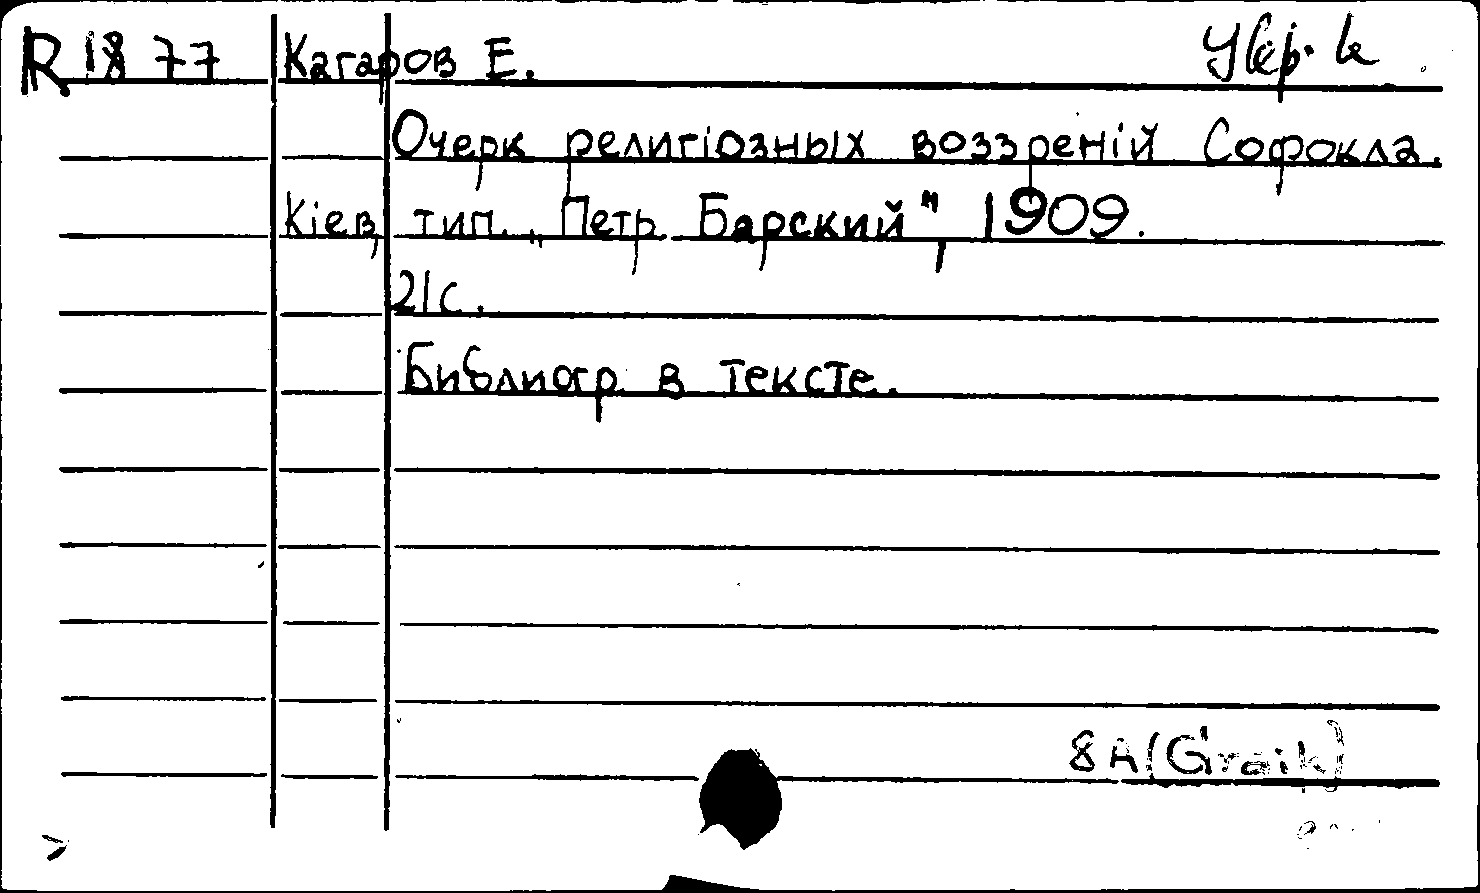 R 1877 Кагаров Е.
Очерк религіозных воззреній Софокла.
Кіев, тип. „Петр Барский", 1909.
21с.
Библиогр. в тексте.
8А(Graik)